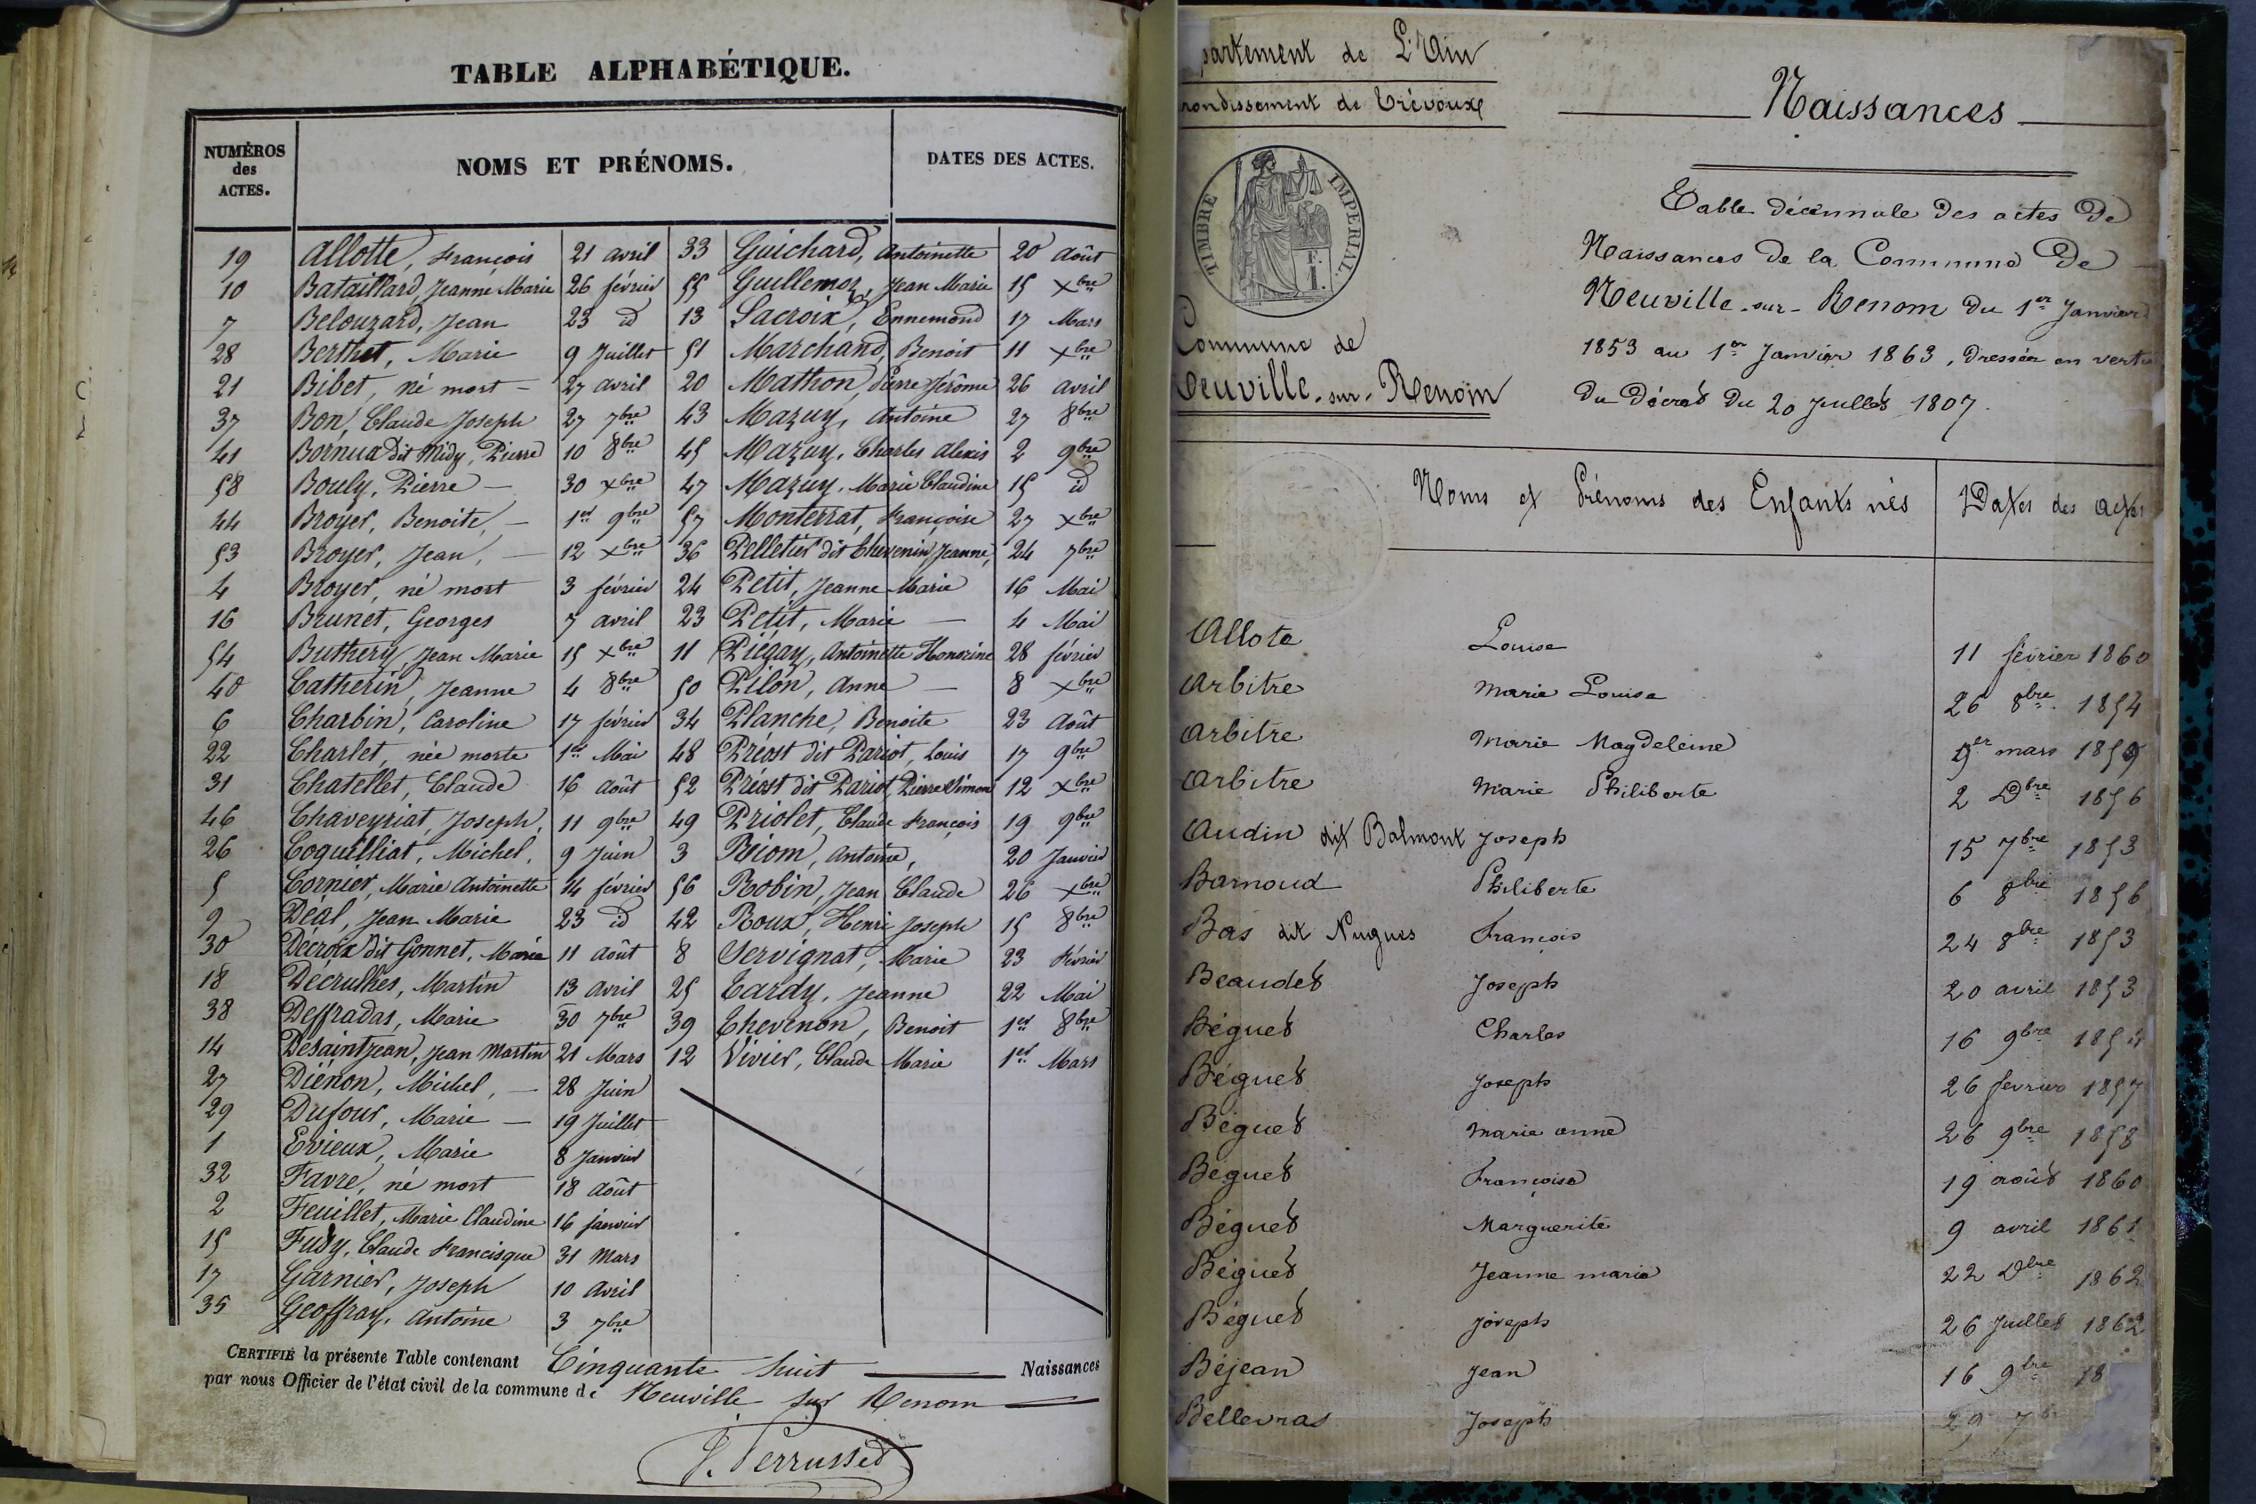 TABLE ALPHABÉTIQUE.
NUMÉROS des ACTES.
NOMS ET PRÉNOMS.
DATES DES ACTES.
19 Allotte, François 21 avril 33 Guichard, Antoinette 20 Août
10 Bataillard, Jeanne Marie 26 février 55 Guillemoz, Jean Marie 15 Xbre
7 Belouzard, Jean 23 id 13 Lacroix, Ennemond 17 Mars
28 Berthet, Marie 9 Juillet 51 Marchand, Benoit 11 Xbre
21 Bibet, né mort – 27 avril 20 Mathon, Pierre Jérôme 26 avril
37 Bon, Claude Joseph 27 7bre 43 Mazuy, Antoine 27 8bre
41 Bornua dit Midy, Pierre 10 8bre 45 Mazuy, Charles Alexis 2 9bre
58 Bouly, Pierre – 30 Xbre 47 Mazuy, Marie Claudine 15 id
44 Broyer, Benoite, – 1er 9bre 57 Monterrat, Françoise 27 Xbre
53 Broyer, Jean, – 12 Xbre 36 Pelletier dit Chevenin, Jeanne, 24 7bre
4 Broyer, né mort 3 février 24 Petit, Jeanne Marie 16 Mai
16 Brunet, Georges 7 avril 23 Petit, Marie – 4 Mai
54 Buthery, Jean Marie 15 Xbre 11 Piégay, Antoinette Honorine 28 février
40 Catherin, Jeanne 4 8bre 50 Pilon, Anne – 8 Xbre
6 Charbin, Caroline 17 février 34 Planche, Benoite 23 Août
22 Charlet, née morte 1er Mai 48 Préost dit Pariot, Louis 17 9bre
31 Chatellet, Claude 16 août 52 Préost dit Pariot, Pierre Simon 12 Xbre
46 Chaveyriat, Joseph, 11 9bre 49 Priolet, Claude François 19 9bre
26 Coquilliat, Michel, 9 Juin 3 Riom, Antoine, 20 Janvier
5 Cornier, Marie Antoinette 14 février 56 Robin, Jean Claude 26 Xbre
9 Déal, Jean Marie 23 id 42 Roux, Henri Joseph 15 8bre
30 Décroix dit Gonnet, Marie 11 août 8 Servignat, Marie 23 Février
18 Décrulhes, Martin 13 avril 25 Tardy, Jeanne 22 Mai
38 Deffradas, Marie 30 7bre 39 Thevenon, Benoit 1er 8bre
14 Desaintjean, Jean Martin 21 Mars 12 Vivier, Claude Marie 1er Mars
27 Diénon, Michel, – 28 Juin
29 Dufour, Marie – 19 Juillet
1 Evieux, Marie 8 Janvier
32 Favre, né mort 18 Août
2 Feuillet, Marie Claudine 16 janvier
15 Fudy, Claude Francisque 31 Mars
17 Garnier, Joseph 10 Avril
35 Geoffray, Antoine 3 7bre
CERTIFIÉ la présente Table contenant Cinquante huit Naissances
par nous Officier de l'état civil de la commune de Neuville sur Renom
J. Perrusset
partement de L'Ain
rondissement de Trévoux
TIMBRE IMPERIAL
Commune de
Neuville-sur-Renom
Naissances
Table décennale des actes de
Naissances de la Commune de
Neuville-sur-Renom du 1er Janvier
1853 au 1er Janvier 1863, dressée en vertu
du décret du 20 Juillet 1807.
Noms et Prénoms des Enfants nés Dates des actes
Allote Louise 11 février 1860
Arbitre Marie Louise 26 8bre 1854
Arbitre Marie Magdeleine mars 1859
Arbitre Marie Philiberte 2 Dbre 1856
Audin dit Balmont Joseph 15 7bre 1853
Barnoud Philiberte 6 8bre 1856
Bas dit Nugues François 24 8bre 1853
Beaudet Joseph 20 avril 1853
Béguet Charles 16 9bre
Béguet Joseph 26 fevrier 1857
Béguet Marie anne 26 9bre 1858
Béguet Françoise 19 août 1860
Béguet Marguerite 9 avril 1861
Béguet Jeanne marie 22 Dbre 1862
Béguet Joseph 26 Juillet 1862
Béjean Jean 16 9bre 18
Bellevras Joseph 29